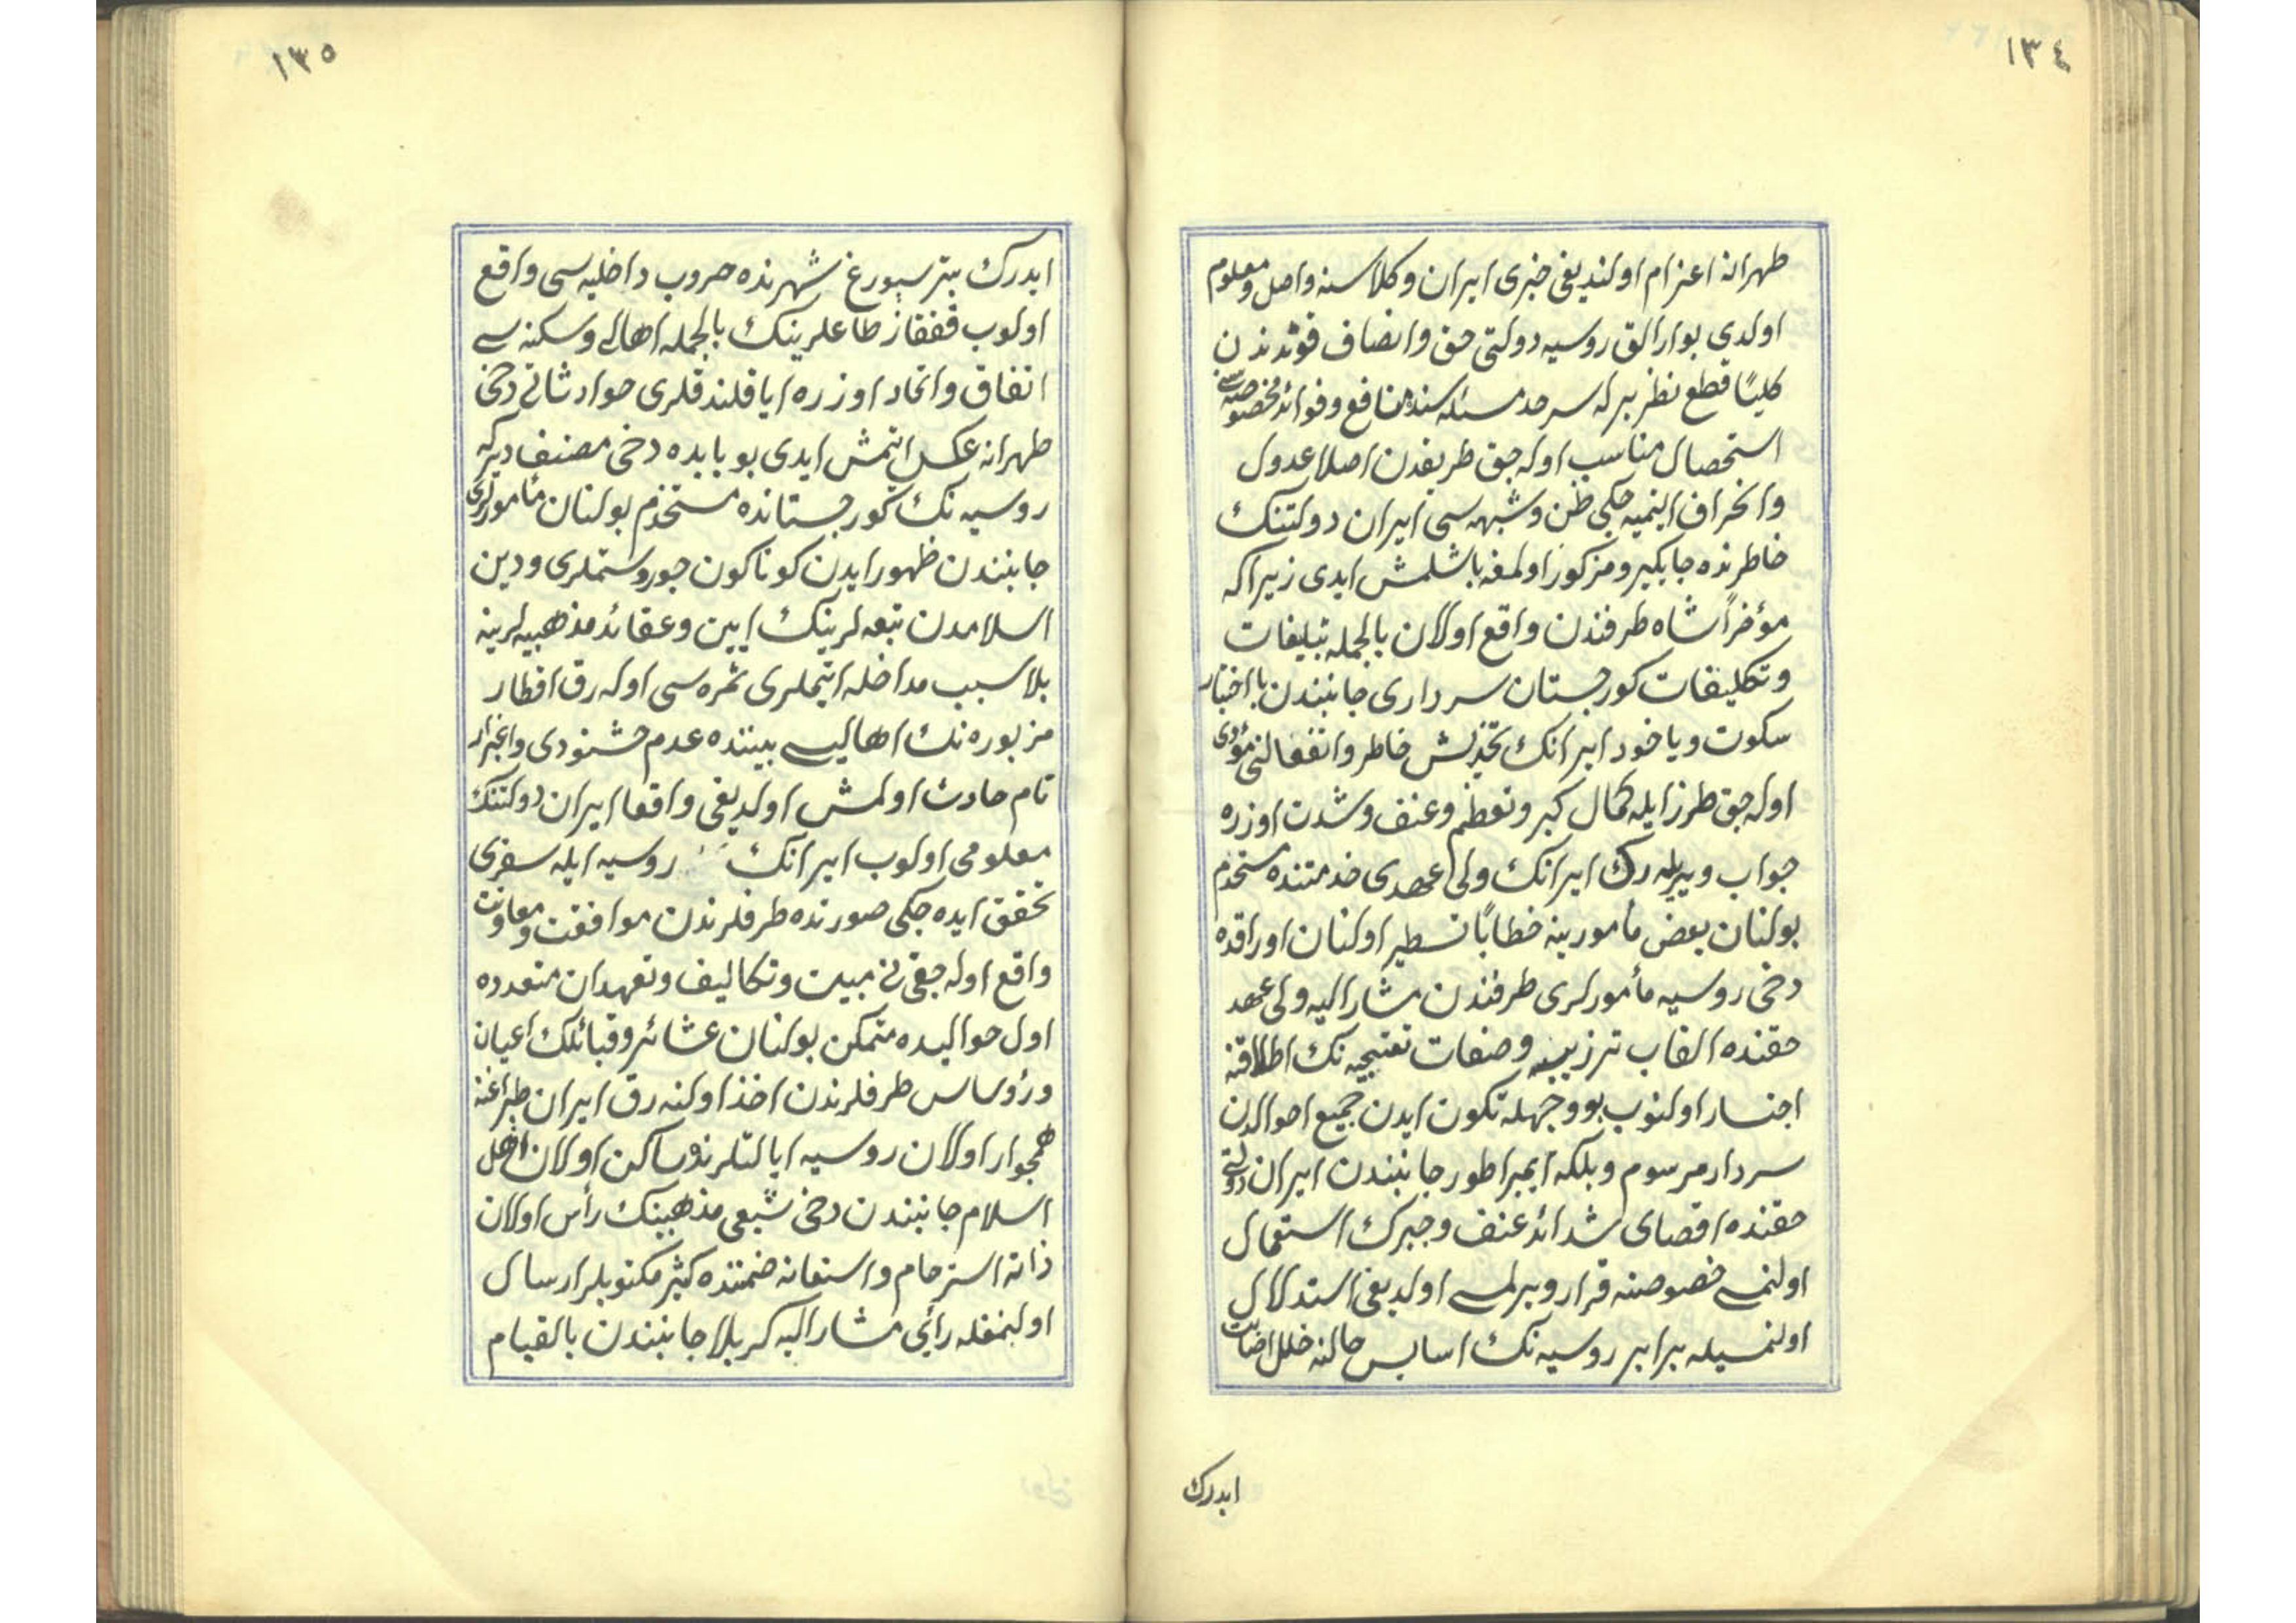 ١٣٤
طهرانه اعزام اولنديغى خبرى ايران وكلاسنه واصل ومعلوم
اولدى بوارالق روسيه دولتى حق وانصاف قوتندن
كليًا قطع نظر برله سرحد مسئله سنده منافع وفوائد مخصوصه سنى
استحصال مناسب اوله جق طريقدن اصلا عدول
وانحراف ايتميه جكى ظن وشبهه سى ايران دولتنك
خاطرنده جايكير ومركوز اولمغه باشلمش ايدى زيراكه
مؤخراً شاه طرفندن واقع اولان بالجمله تبليغات
وتكليفات كورجستان سردارى جانبندن يا اختيار
سكوت وياخود ايرانك تخديش خاطر وانفعالنى مؤدى
اوله جق طرز ايله كمال كبر وتعظم وعنف وشدت اوزره
جواب ويريله رك ايرانك ولى عهدى خدمتنده مستخدم
بولنان بعض مأمورينه خطابًا تسطير اولنان اوراقده
دخى روسيه مأمورلرى طرفندن مشار اليه ولى عهد
حقنده القاب ترزيليه وصفات تقبيحيه نك اطلاقنه
اجتسار اولنوب بو وجهله تكون ايدن جميع احوالدن
سردار مرسوم وبلكه ايمپراطور جانبندن ايران دولتى
حقنده اقصاى شدائد عنف وجبرك استعمال
اولنمسى خصوصنه قرار ويرلمسى اولديغى استدلال
اولنمسيله برابر روسيه نك اسايش حالنه خلل اصابت
ايدرك
١٣٥
ايدرك پترسبورغ شهرنده حروب داخليه سى واقع
اولوب قفقاز طاغلرينك بالجمله اهالى وسكنه سى
اتفاق واتحاد اوزره اياقلندقلرى حوادثاتى دخى
طهرانه عكس ايتمش ايدى بو بابده دخى مصنف ديركه
روسيه نك كورجستانده مستخدم بولنان مأمورلرى
جانبندن ظهور ايدن كوناكون جور وستملرى ودين
اسلامدن تبعه لرينك ايين وعقائد مذهبيه لرينه
بلا سبب مداخله ايتملرى ثمره سى اوله رق اقطار
مزبوره نك اهاليسى بيننده عدم خشنودى واغبرار
تام حادث اولمش اولديغى واقعا ايران دولتنك
معلومى اولوب ايرانك روسيه ايله سفرى
تحقق ايده جكى صورتده طرفلرندن موافقت ومعاونت
واقع اوله جغنى مبين وتكاليف وتعهدات متعدده
اول حواليده متمكن بولنان عشائر وقبائلك اعيان
ورؤساسى طرفلرندن اخذ اولنه رق ايران طپراغنه
همجوار اولان روسيه ايالتلرنده ساكن اولان اهل
اسلام جانبندن دخى شيعى مذهبينك رأس اولان
ذاته استرحام واستغاثه ضمننده كثير مكتوبلر ارسال
اولنمغله رأى مشار اليه كربلا جانبندن بالقيام